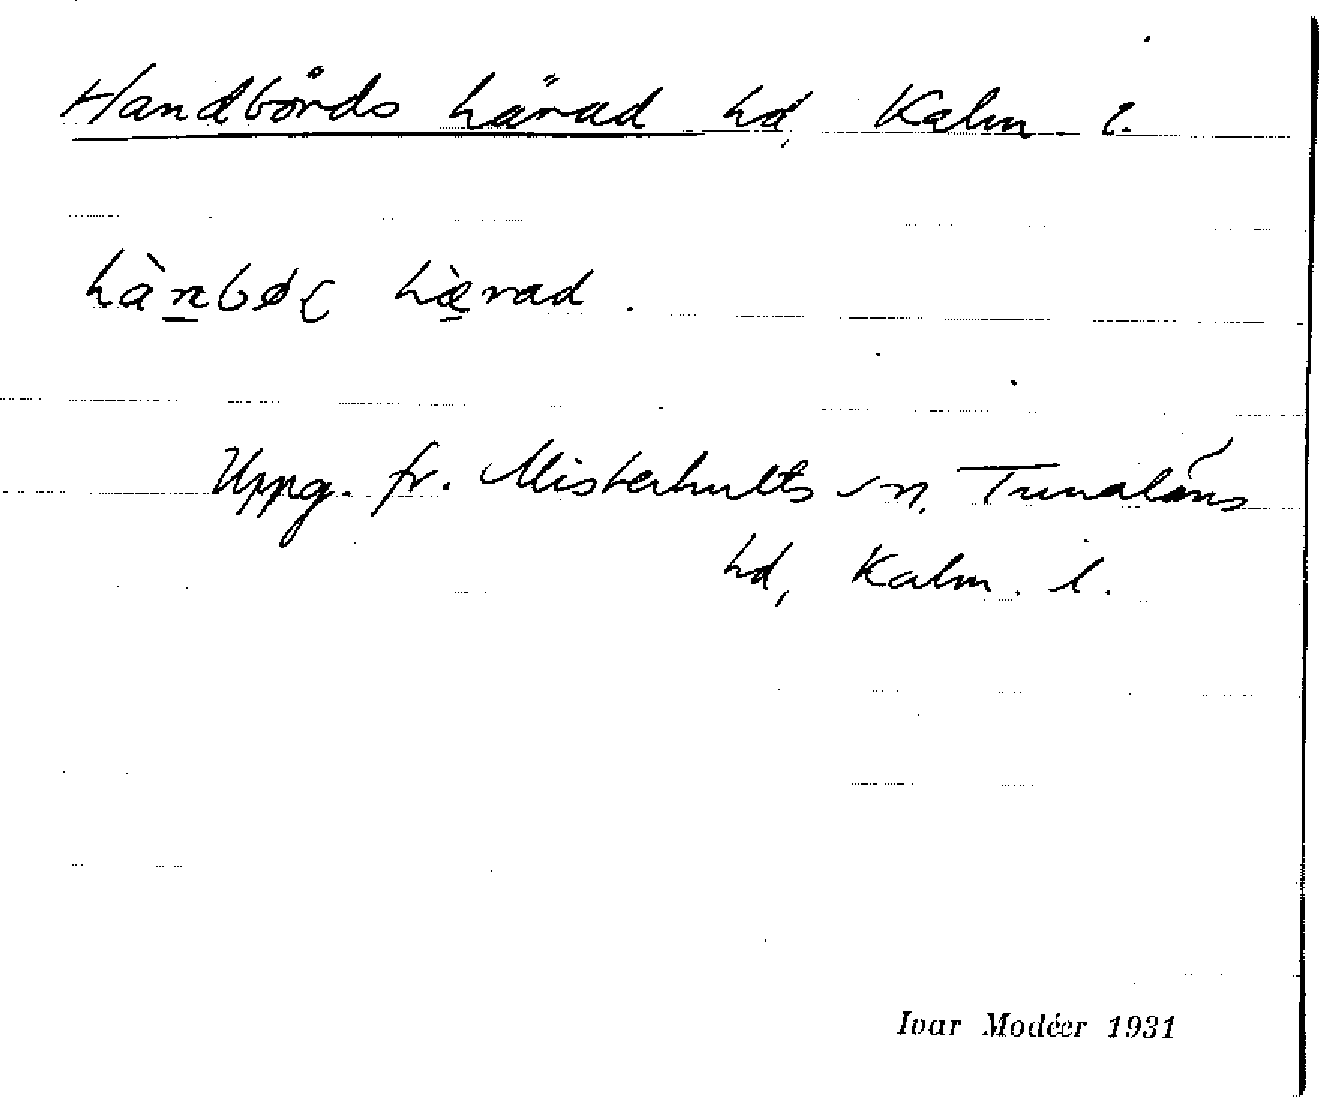 Handbörds härad hd, Kalm. l.
hànbøʃ hæ̀rad.
Uppg. fr. Misterhults sn, Tunaläns
hd, Kalm. l.
Ivar Modéer 1931